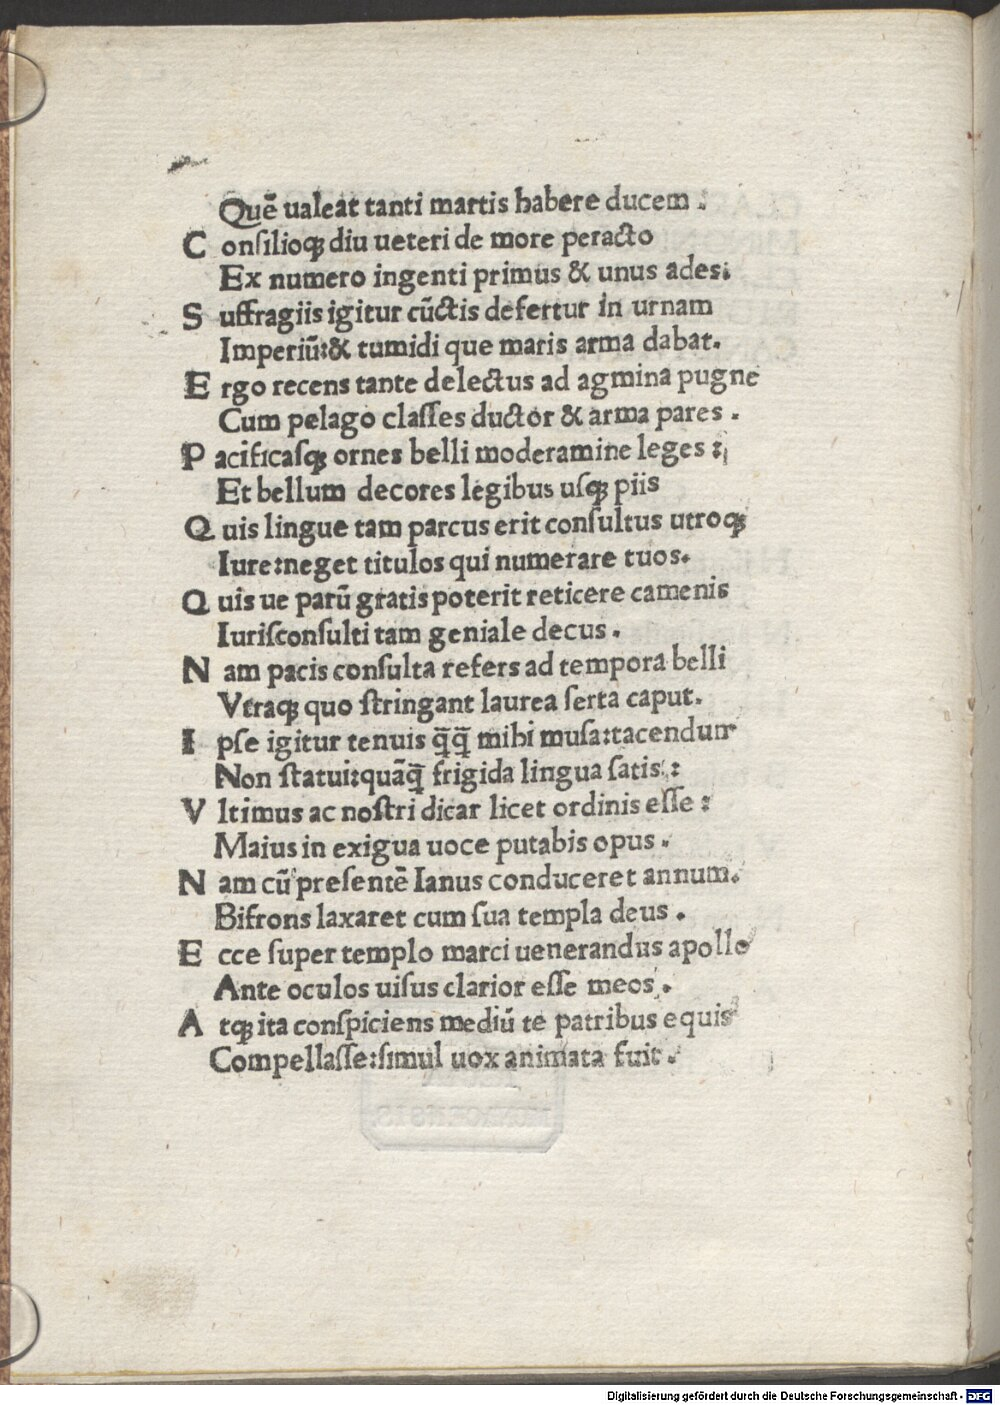 Quē ualeat tanti martis habere ducem .
C onsilioqꝫ diu ueteri de more peracto
Ex numero ingenti primus & unus ades:
S uffragiis igitur cūctis defertur in urnam
Imperiū:& tumidi que maris arma dabat.
E rgo recens tante delectus ad agmina pugne
Cum pelago claſſes ductor & arma pares .
P acificaſqꝫ ornes belli moderamine leges :
Et bellum decores legibus uſqꝫ piis
Q uis lingue tam parcus erit conſultus utroqꝫ
Iure:neget titulos qui numerare tuos.
Q uis ue parū gratis poterit reticere camenis
Iuriſconſulti tam geniale decus .
N am pacis conſulta refers ad tempora belli
Vtraqꝫ quo ſtringant laurea ſerta caput.
I pſe igitur tenuis q̄q̄ mihi muſa:tacendum
Non ſtatui:quāq̄ frigida lingua ſatis :
V ltimus ac noſtri dicar licet ordinis eſſe :
Maius in exigua uoce putabis opus .
N am cū preſentē Ianus conduceret annum.
Bifrons laxaret cum ſua templa deus .
E cce ſuper templo marci uenerandus apollo
Ante oculos uiſus clarior eſſe meos .
A tqꝫ ita conſpiciens mediū te patribus equis
Compellaſſe:simul uox animata fuit .
Digitalisierung gefördert durch die Deutsche Forschungsgemeinschaft - DFG